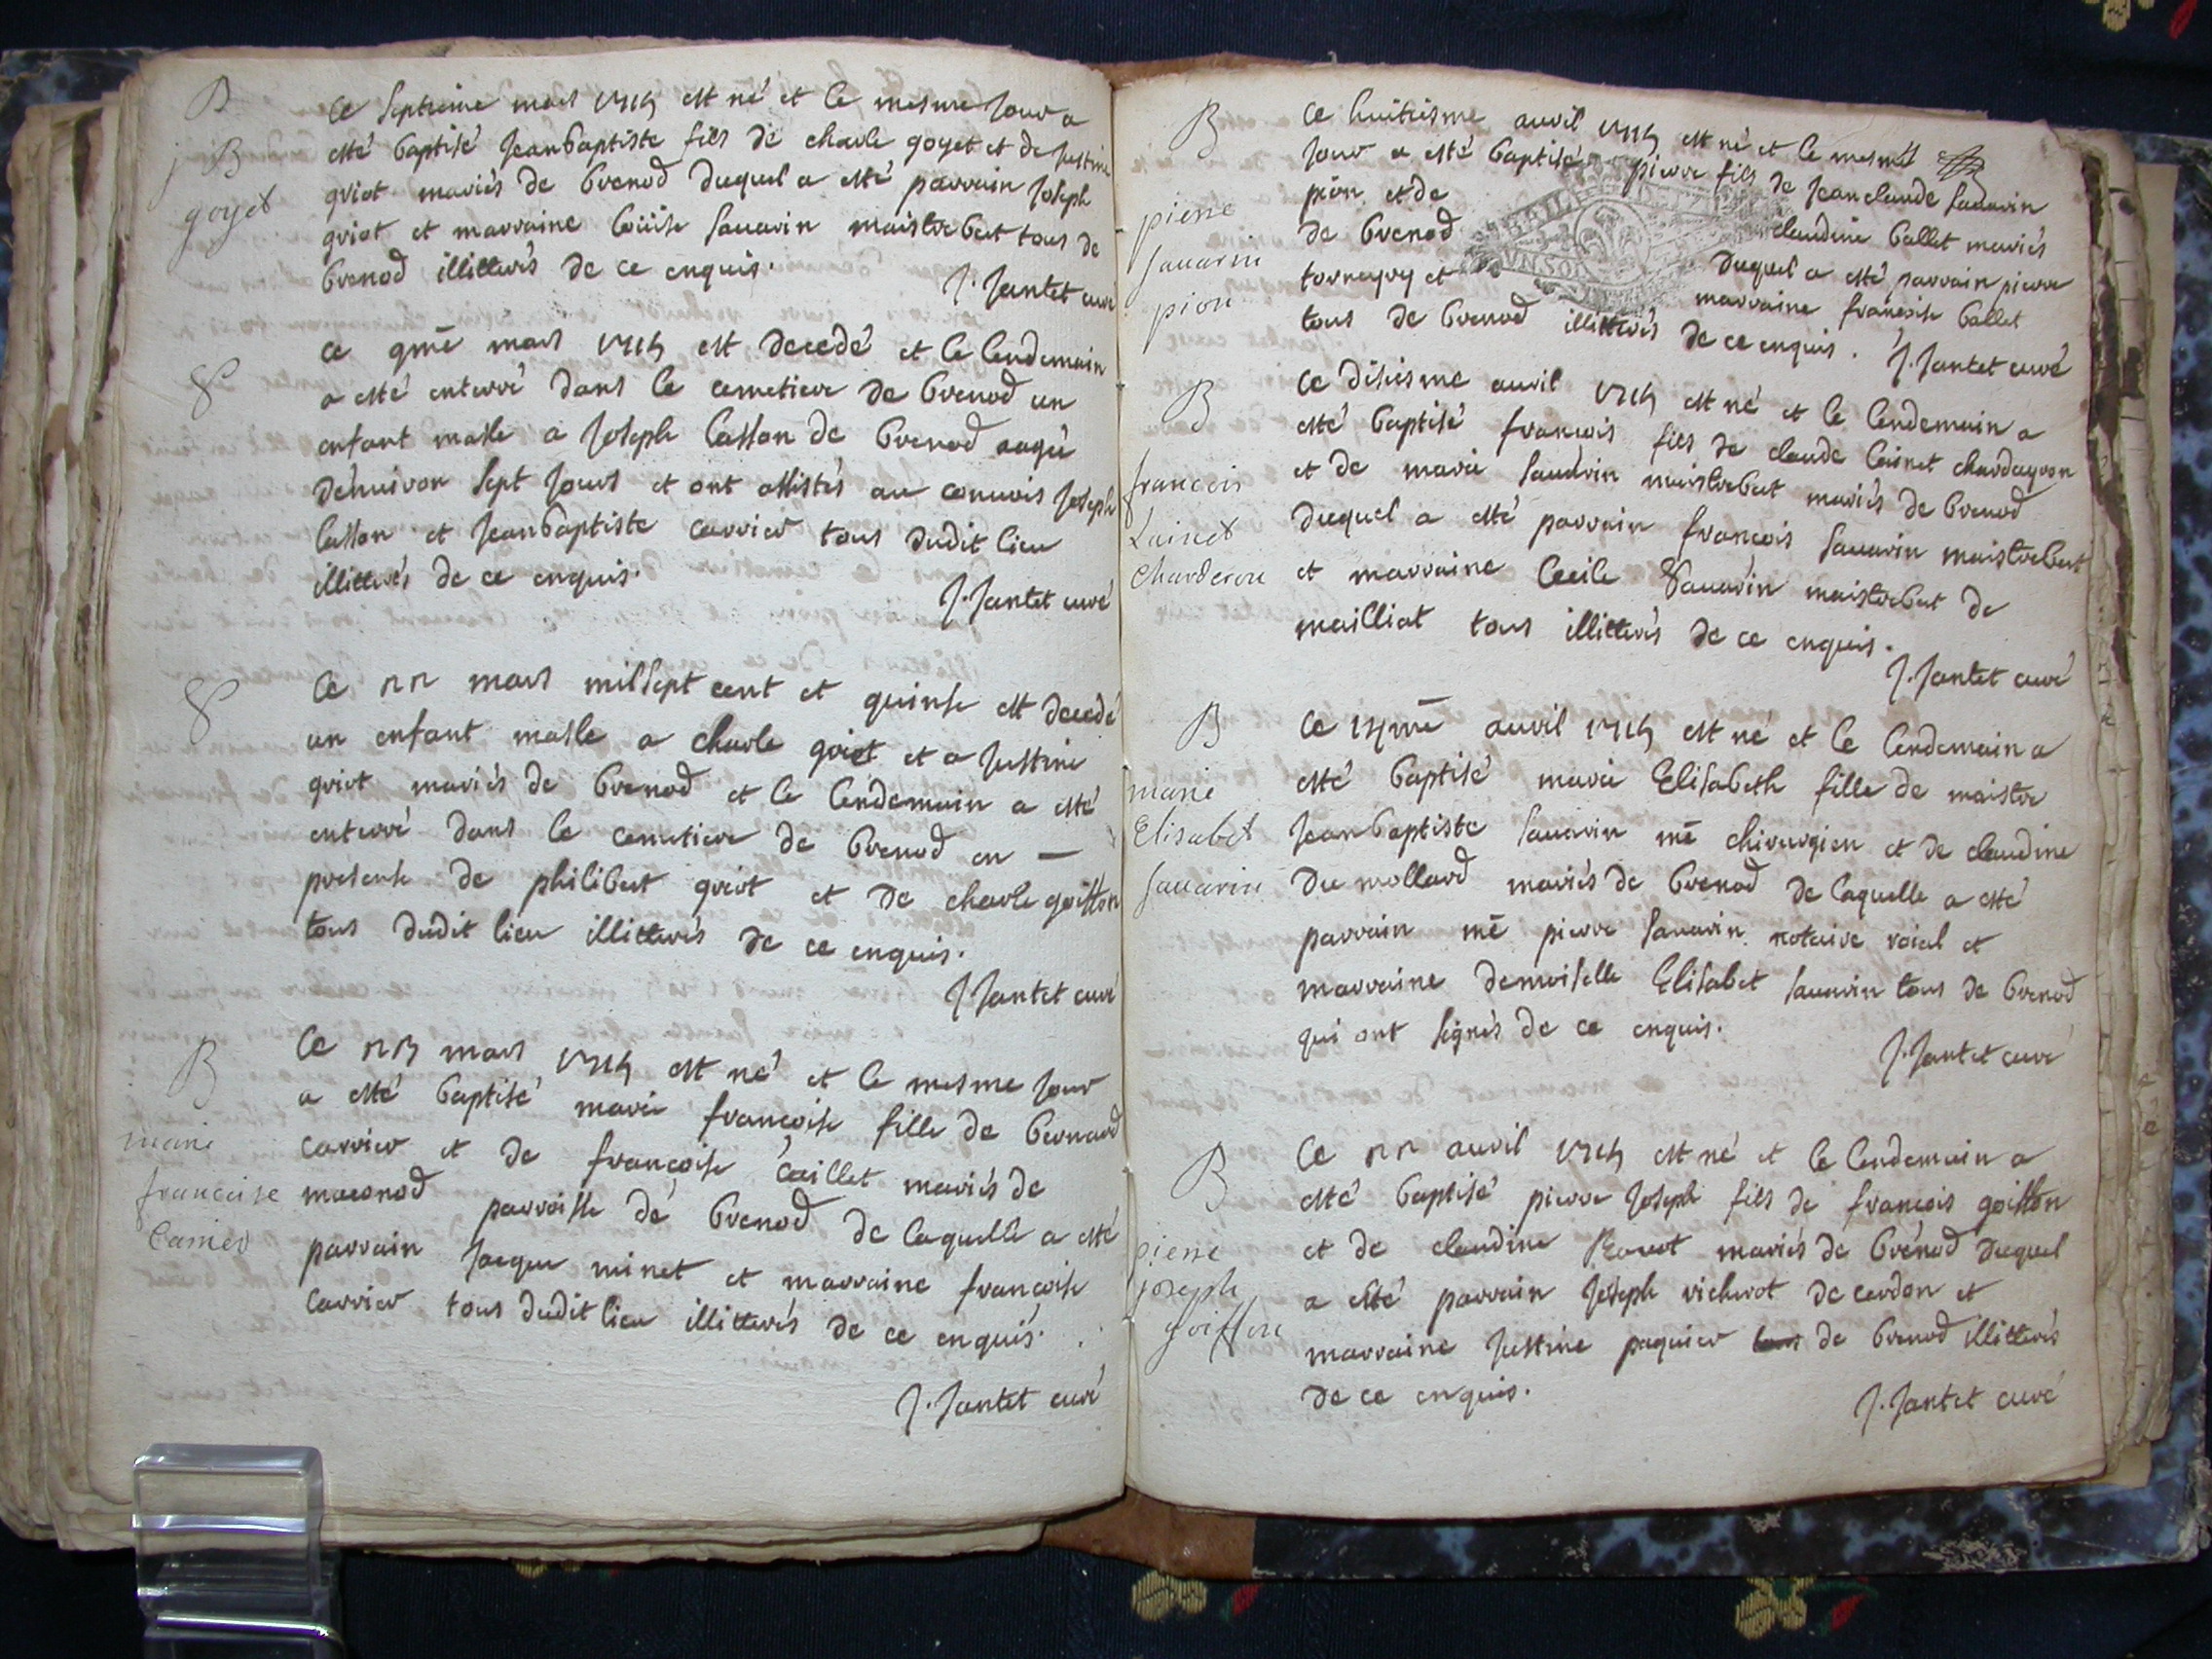 B
Ce septiesme mars 1715 est né et le mesme jour a
j B
esté baptisé jeanbaptiste fils de charle goyet et de justine
goyet
griot mariés de brenod duquel a esté parrain joseph
griot et marraine loüise sauarin maistrebert tous de
brenod illitterés de ce enquis.
J. Jantet curé
ce 9me mars 1715 est decedé et le lendemain
a esté enterré dans le cemetiere de brenod un
enfant masle a joseph lasson de brenod aagé
d'enuiron sept jours et ont assistés au conuois joseph
lasson et jeanbaptiste carrier tous dudit lieu
illitterés de ce enquis.
J. Jantet curé
Ce 22 mars mil sept cent et quinse est decedé
un enfant masle a charle goiet et a justine
griot mariés de brenod et le lendemain a esté
enterré dans le cemetiere de brenod en —
presense de philibert griot et de charle goiffon
tous dudit lieu illitterés de ce enquis.
J. Jantet curé
B
marie
francoise
Carrier
Ce 23 mars 1715 est né et le mesme jour
a esté baptisé marie francoise fille de bernard
carrier et de francoise caillet mariés de
maconod parroisse de brenod de laquelle a esté
parrain jacque minet et marraine francoise
carrier tous dudit lieu illitterés de ce enquis.
J. Jantet curé
B
pierre
sauarin
pion
Ce huitiesme auril 1715 est né et le mesme
jour a esté baptisé pierre fils de jeanclaude sauarin
pion et de claudine ballet mariés
de brenod duquel a esté parrain pierre
et marraine francoise ballet
tous de brenod illitterés de ce enquis.
J. Jantet curé
B
francois
Lainet
Charderon
Ce disiesme auril 1715 est né et le lendemain a
esté baptisé francois fils de claude lainet chardayron
et de marie sauarin maistrebert mariés de brenod
duquel a esté parrain francois sauarin maistrebert
et marraine Cecile Sauarin maistrebert de
mailliat tous illitterés de ce enquis.
J. Jantet curé
B
marie
Elisabet
sauarin
Ce 14me auril 1715 est né et le lendemain a
esté baptisé marie Elisabeth fille de maistre
jeanbaptiste sauarin me chirurgien et de claudine
du mollard mariés de brenod de laquelle a esté
parrain me pierre sauarin notaire roial et
marraine demoiselle Elisabet sauarin tous de brenod
qui ont signés de ce enquis.
J. Jantet curé
B
pierre
joseph
goiffon
Ce 22 auril 1715 est né et le lendemain a
esté baptisé pierre joseph fils de francois goiffon
et de claudine mariés de brenod duquel
a esté parrain joseph richerot de cerdon et
marraine justine paquier tous de brenod illitterés
de ce enquis.
J. Jantet curé